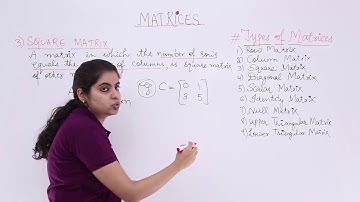 MATRICES
3) SQUARE MATRIX
A matrix in which the number of rows
equals the of columns, is square matrix
of order
eg C = [0 1
3 5]
# Types of Matrices
1) Row Matrix
2) Column Matrix
3) Square Matrix
4) Diagonal Matrix
5) Scalar Matrix
6) Identity Matrix
7) Null Matrix
8) Upper Triangular Matrix
9) Lower Triangular Matrix